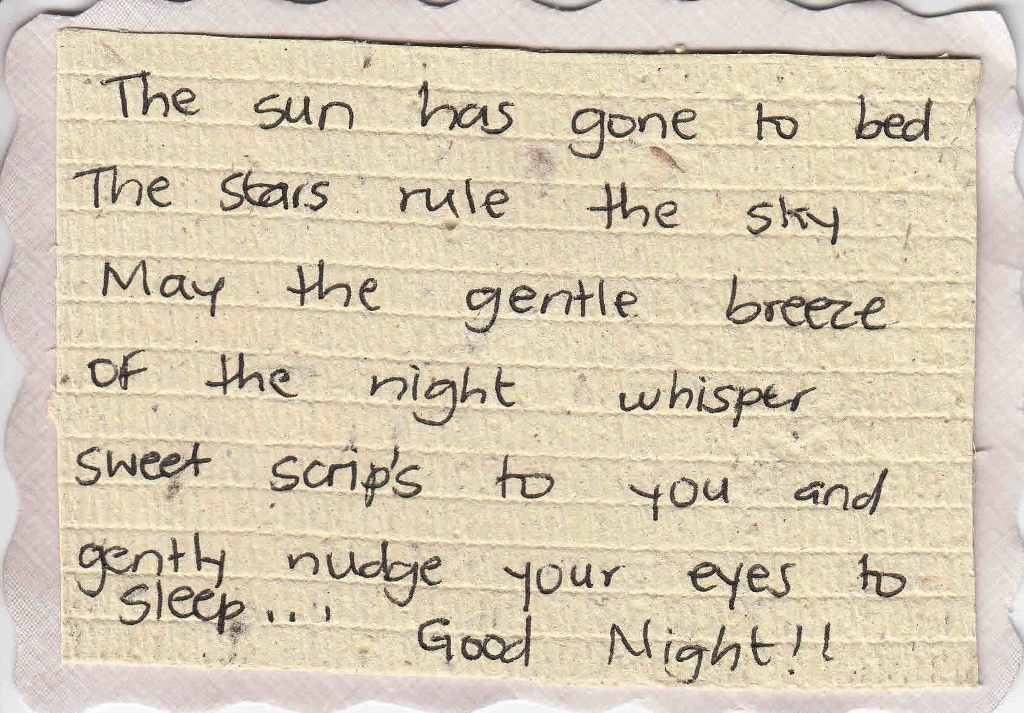 The sun has gone to bed
The stars rule the sky
May the gentle breeze
of the night whisper
sweet scrip's to you and
gently nudge your eyes to
sleep....
Good Night!!